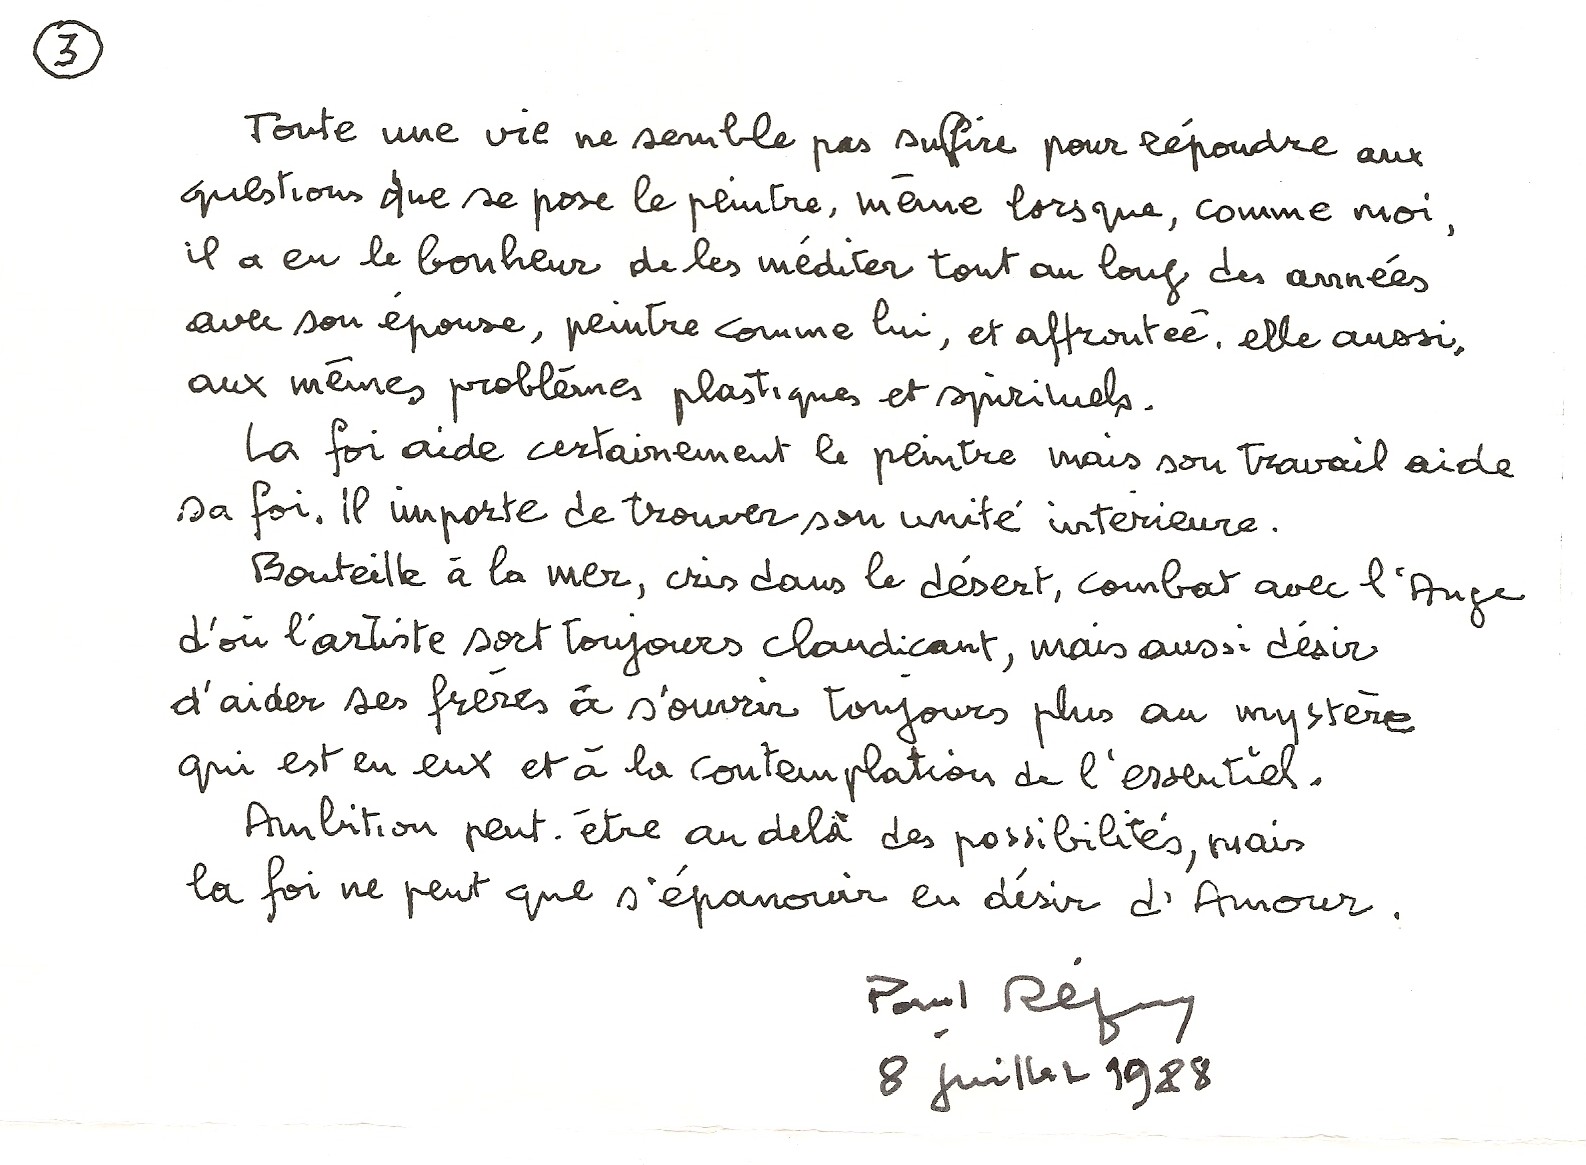 3
Toute une vie ne semble pas suffire pour répondre aux
questions que se pose le peintre, même lorsque, comme moi,
il a eu le bonheur de les méditer tout au long des années
avec son épouse, peintre comme lui, et affrontée, elle aussi,
aux mêmes problèmes plastiques et spirituels.
La foi aide certainement le peintre mais son travail aide
sa foi. Il importe de trouver son unité intérieure.
Bouteille à la mer, cris dans le désert, combat avec l'Ange
d'où l'artiste sort toujours claudicant, mais aussi désir
d'aider ses frères à s'ouvrir toujours plus au mystère
qui est en eux et à la contemplation de l'essentiel.
Ambition peut-être au delà des possibilités, mais
la foi ne peut que s'épanouir en désir d'Amour.
Paul Régny
8 juillet 1988